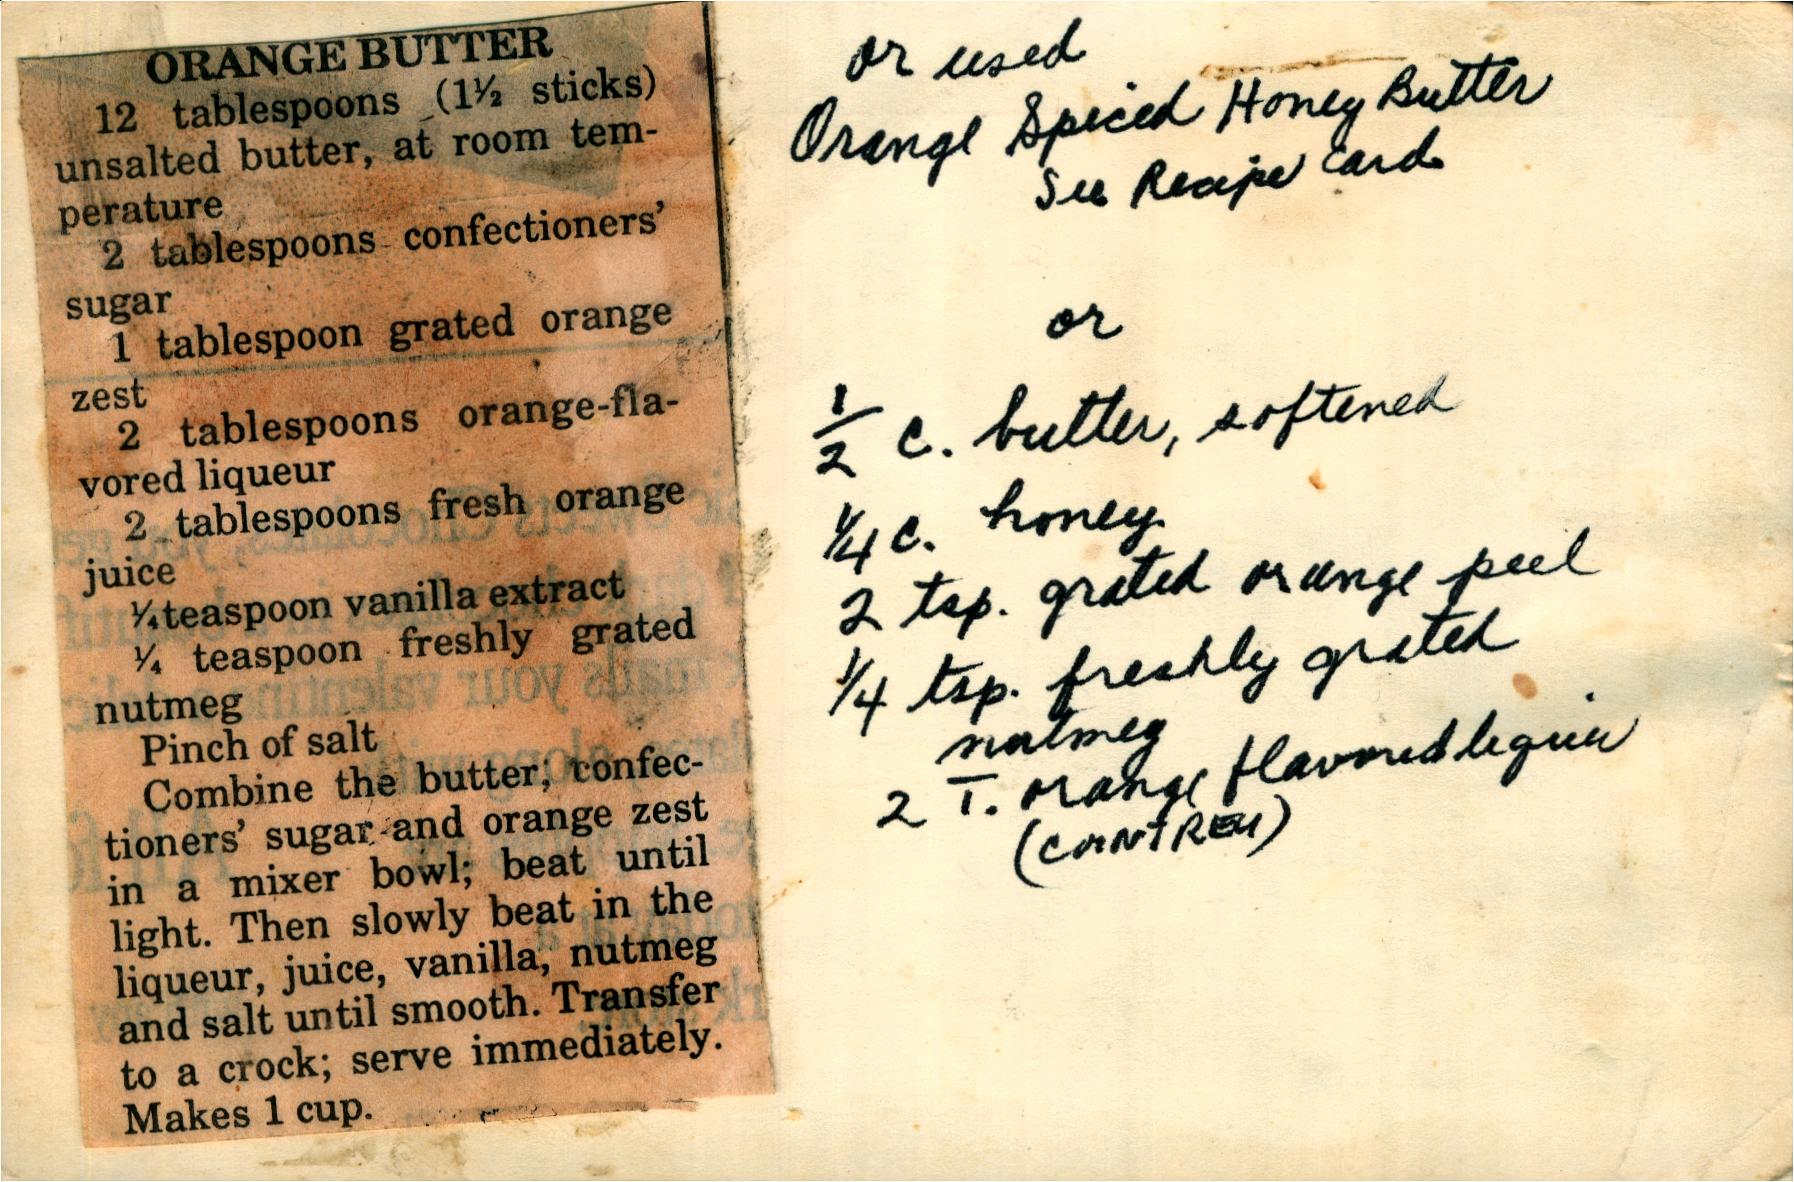 ORANGE BUTTER
12 tablespoons (1½ sticks)
unsalted butter, at room tem-
perature
2 tablespoons confectioners'
sugar
1 tablespoon grated orange
zest
2 tablespoons orange-fla-
vored liqueur
2 tablespoons fresh orange
juice
¼ teaspoon vanilla extract
¼ teaspoon freshly grated
nutmeg
Pinch of salt
Combine the butter, confec-
tioners' sugar and orange zest
in a mixer bowl; beat until
light. Then slowly beat in the
liqueur, juice, vanilla, nutmeg
and salt until smooth. Transfer
to a crock; serve immediately.
Makes 1 cup.
or used
Orange Spiced Honey Butter
See Recipe Card
or
½ c. butter, softened
¼ c. honey
2 tsp. grated orange peel
¼ tsp. freshly grated
nutmeg
2 T. orange flavored liquier
(COINTREU)